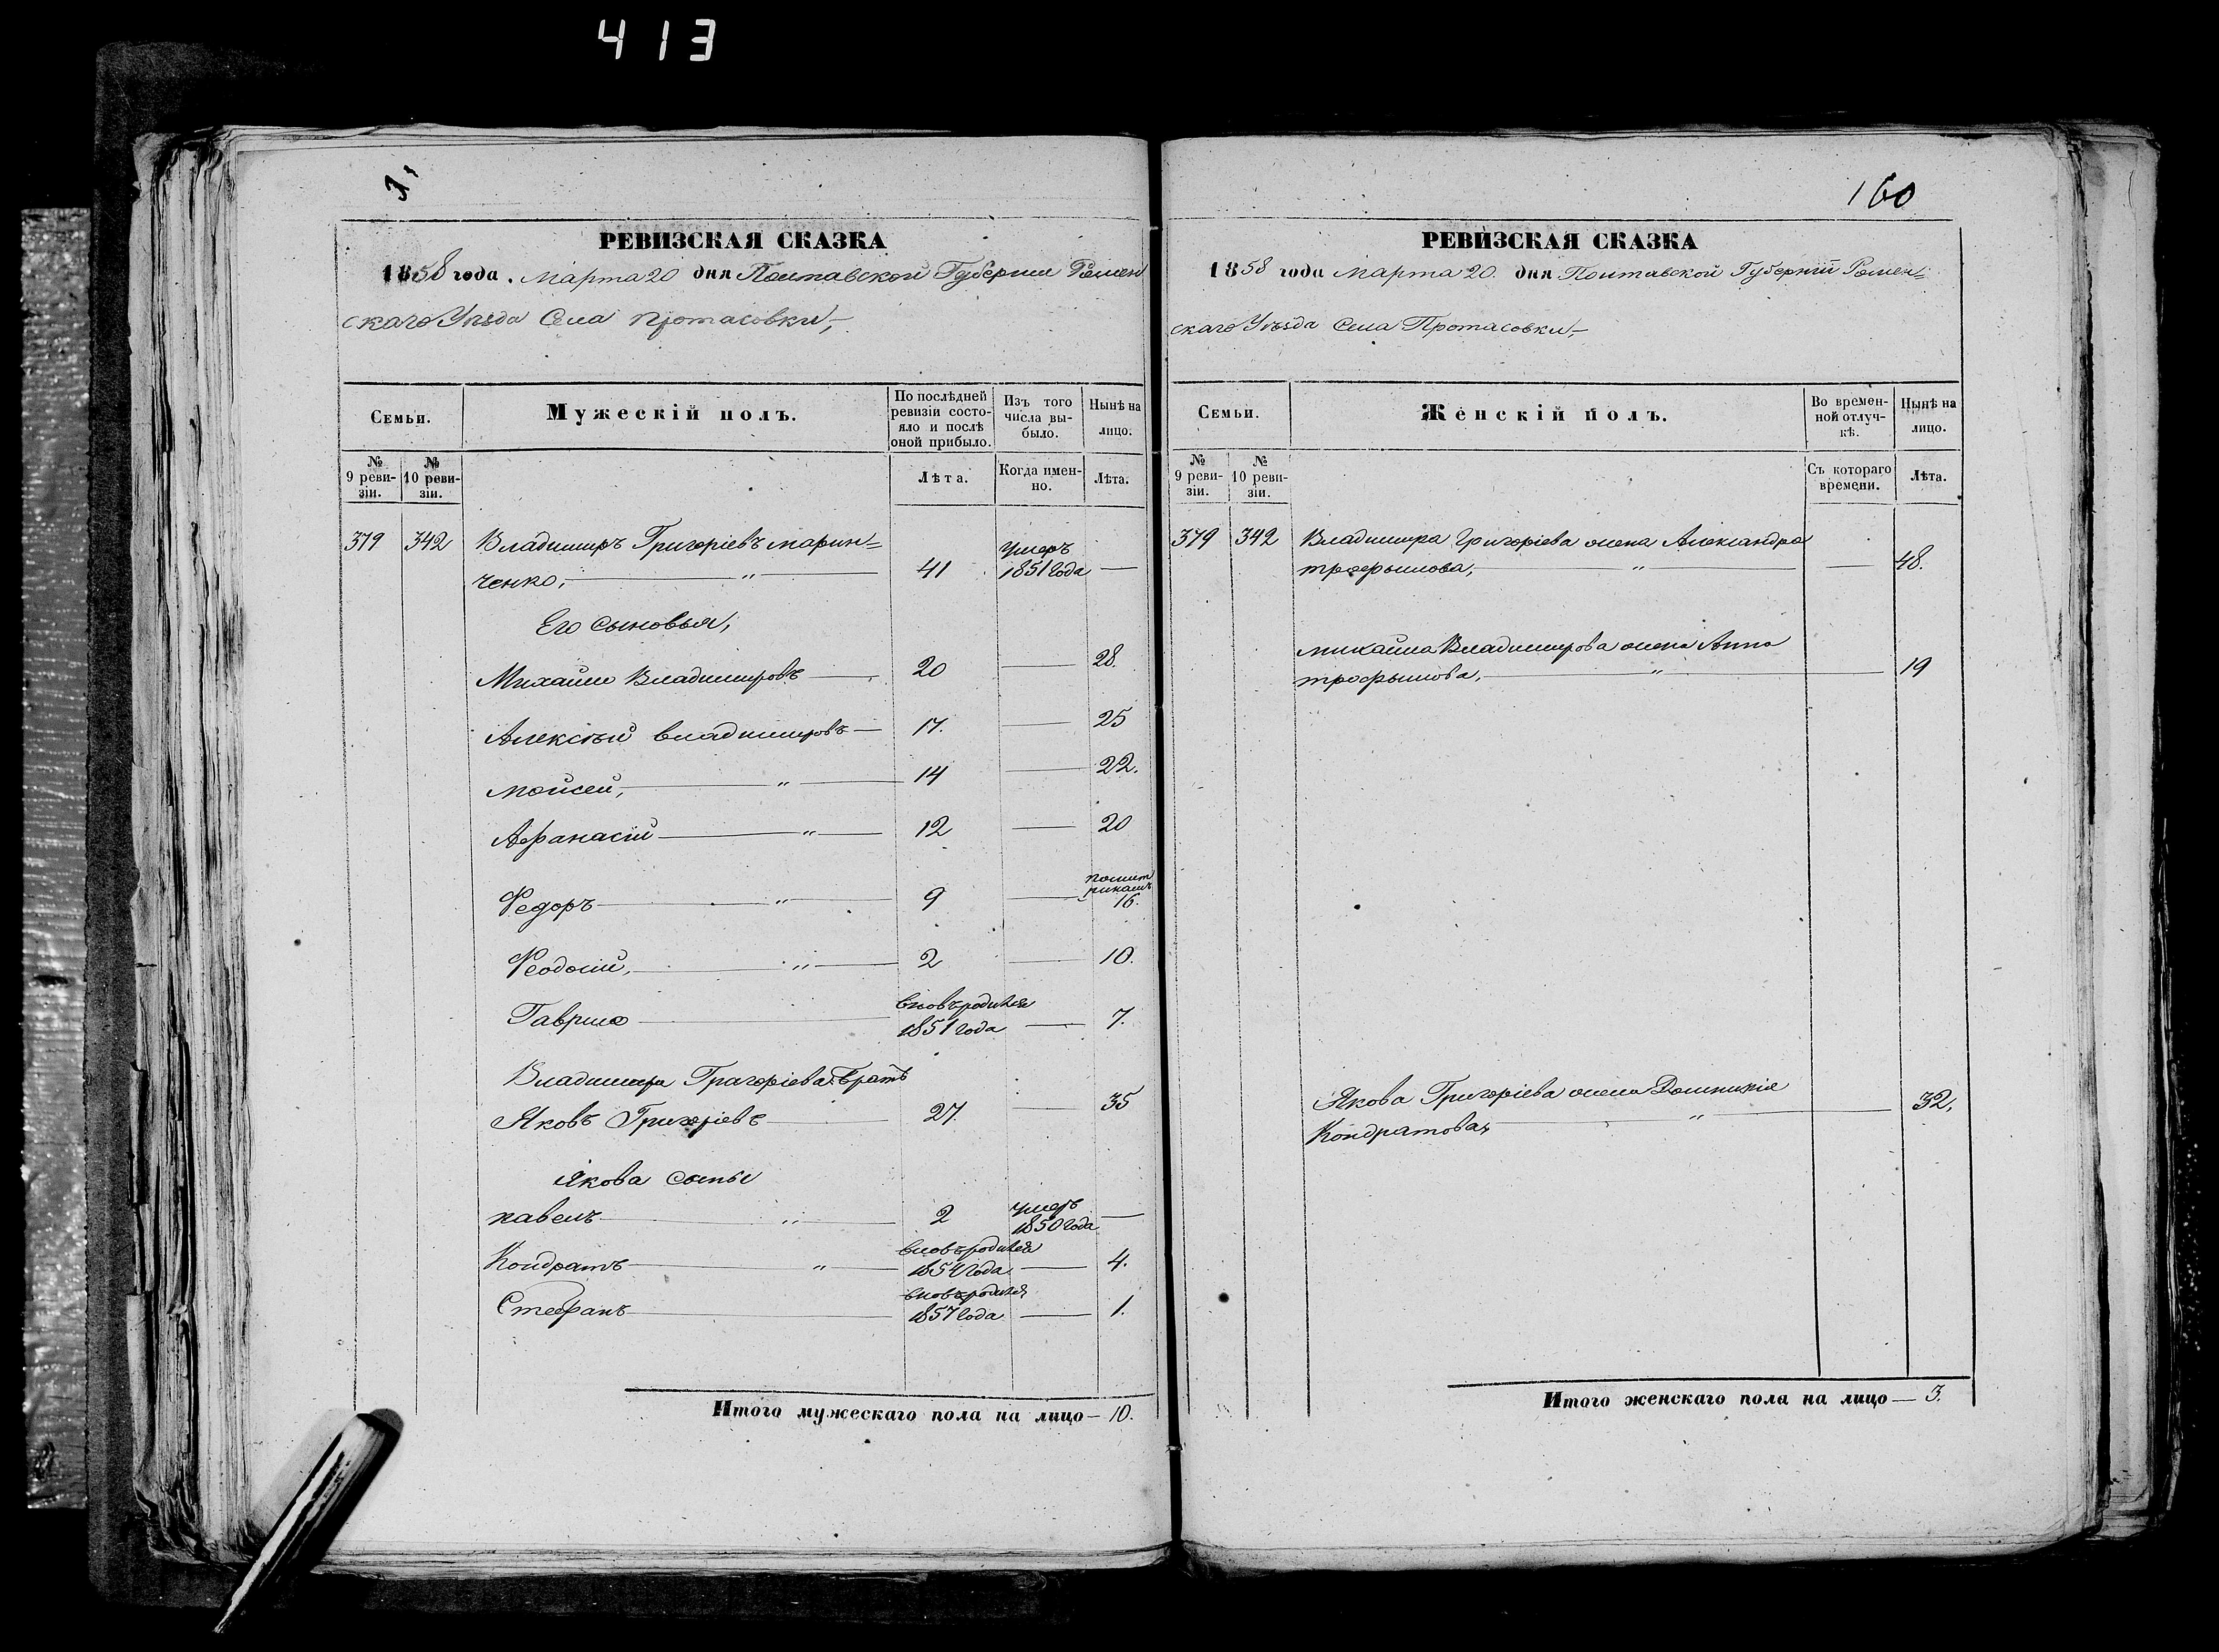 413
160
РЕВИЗСКАЯ СКАЗКА
1858 года. Марта 20 дня Полтавской Губерніи Ромен
скаго Уѣзда Села Протасовки,
Семьи.
Мужескій полъ.
По послѣдней
ревизіи состо-
яло и послѣ
оной прибыло.
Изъ того
числа вы-
было.
Нынѣ на
лицо.
№
9 реви-
зіи.
№
10 реви-
зіи.
Лѣта.
Когда имен-
но.
Лѣта.
379 342 Владимиръ Григоріевъ марин=
ченко, " 41 умеръ 1851 года —
Его сыновья,
Михаилъ Владимировъ — 20 — 28.
Алексѣй владимировъ — 17. — 25
мойсей, " 14 — 22.
Афанасій " 12 — 20
Федоръ " 9 — 16.
Феодосій, " 2 — 10.
Гаврило — вновь родился 1851 года — 7.
Владимира Григоріева братъ
Яковъ Григоріевъ — 27. — 35
Якова сыны
павелъ " 2 умеръ 1850 года —
Кондратъ " вновь родился 1854 года — 4.
Стефанъ — вновь родился 1857 года — 1.
Итого мужескаго пола на лицо — 10.
РЕВИЗСКАЯ СКАЗКА
1858 года Марта 20. дня Полтавской Губерніи Ромен=
скаго Уѣзда Села Протасовки,
Семьи.
Женскій полъ.
Во времен-
ной отлуч-
кѣ.
Нынѣ на
лицо.
№
9 реви-
зіи.
№
10 реви-
зіи.
Съ котораго
времени.
Лѣта.
379 342 Владимира Григоріева жена Александра
трофымова, " — 48.
михаила Владимирова жена Анна
трофымова, " — 19
Якова Григоріева жена Домникія
Кондратова, " — 32,
Итого женскаго пола на лицо — 3.